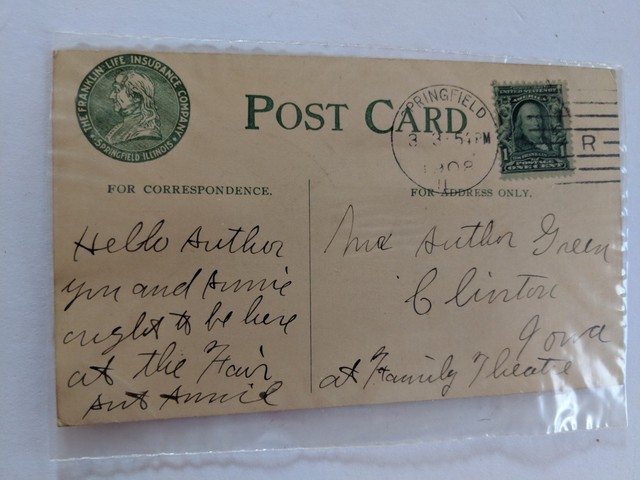 THE FRANKLIN LIFE INSURANCE COMPANY
SPRINGFIELD ILLINOIS
POST CARD
SPRINGFIELD
PM
1908
ONE CENT
R
FOR CORRESPONDENCE.
FOR ADDRESS ONLY.
Hello Author
you and Annie
ought to be here
at the Fair
Ant Annie
Author Green
Clinton
Iowa
at Family Theatre